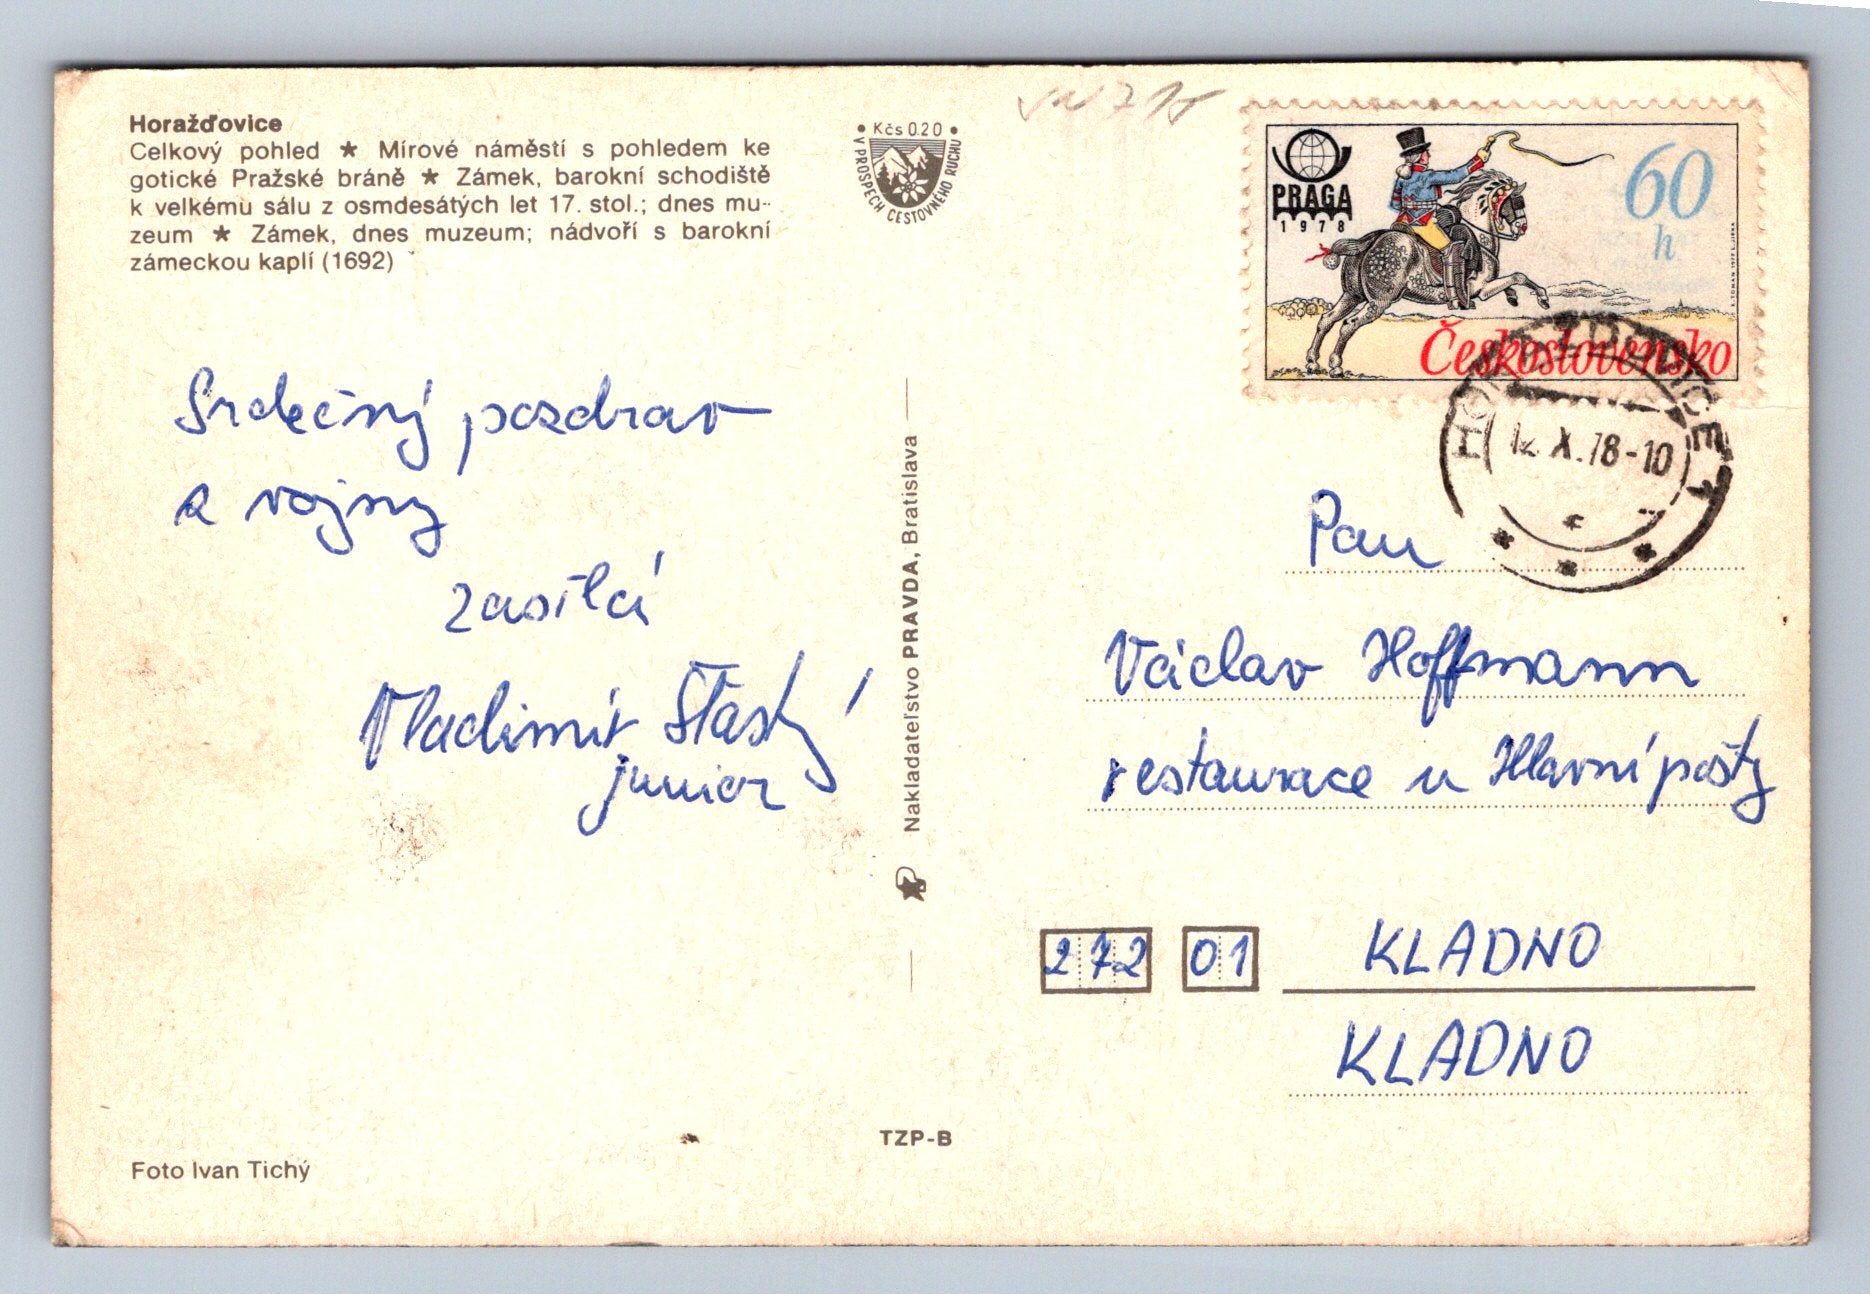 Horažďovice
Celkový pohled ★ Mírové náměstí s pohledem ke
gotické Pražské bráně ★ Zámek, barokní schodiště
k velkému sálu z osmdesátých let 17. stol.; dnes mu-
zeum ★ Zámek, dnes muzeum; nádvoří s barokní
zámeckou kaplí (1692)
• Kčs 0.20 •
V PROSPECH CESTOVNÉHO RUCHU
PRAGA
1978
60
h
Československo
12. X. 78-10
Srdečný pozdrav
z vojny
zasílá
Vladimír Šťastný
junior
Nakladateľstvo PRAVDA, Bratislava
Pan
Václav Hoffmann
restaurace u Hlavní pošty
272 01 KLADNO
KLADNO
TZP-B
Foto Ivan Tichý